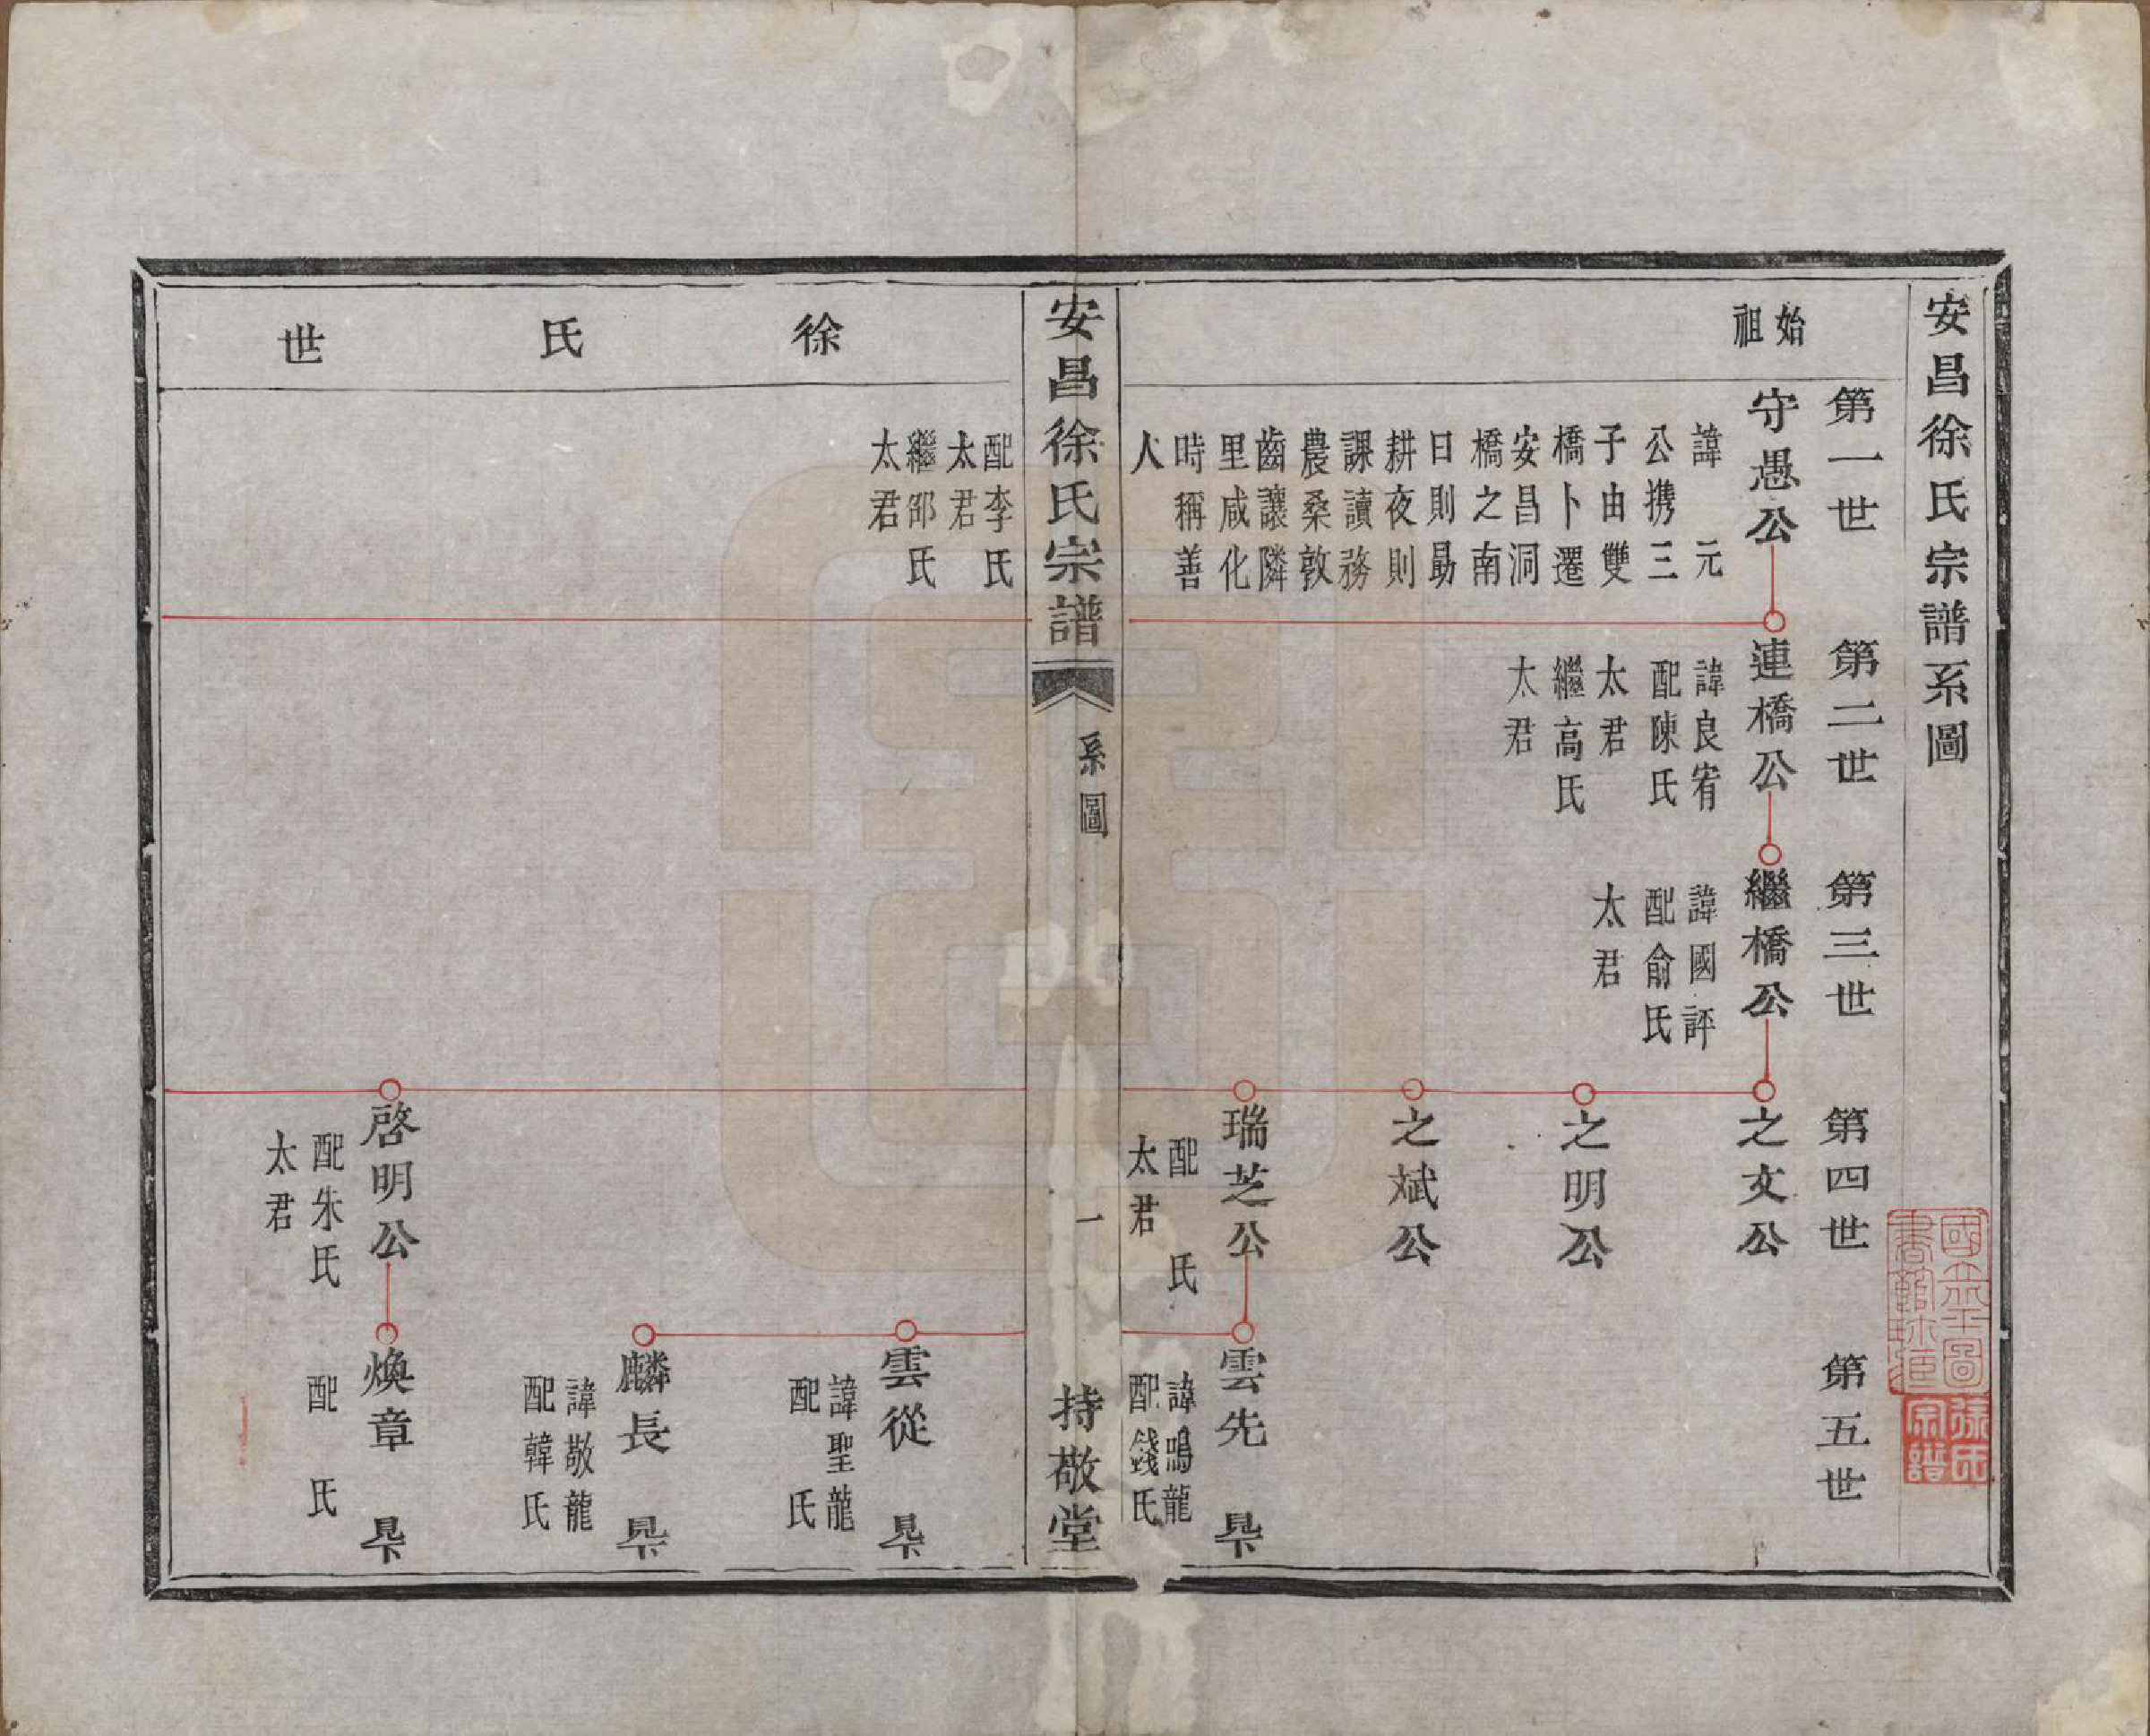 安昌徐氏宗譜系圖
始祖
第一世
守愚公
諱　元
公携三
子由雙
橋卜遷
安昌洞
橋之南
日則勗
耕夜則
課讀務
農桑敦
齒讓隣
里咸化
時稱善
人
配李氏
太君
繼邵氏
太君
第二世
連橋公
諱良宥
配陳氏
太君
繼高氏
太君
第三世
繼橋公
諱國評
配俞氏
太君
第四世
之文公
之明公
之斌公
瑞芝公
配　氏
太君
啓明公
配朱氏
太君
第五世
雲先
諱鳴龍
配錢氏
見下
雲從
諱聖龍
配　氏
見下
麟長
諱敬龍
配韓氏
見下
煥章
配　氏
見下
安昌徐氏宗譜
系圖
一
持敬堂
徐氏世
國立北平圖書館珠藏
徐氏宗譜